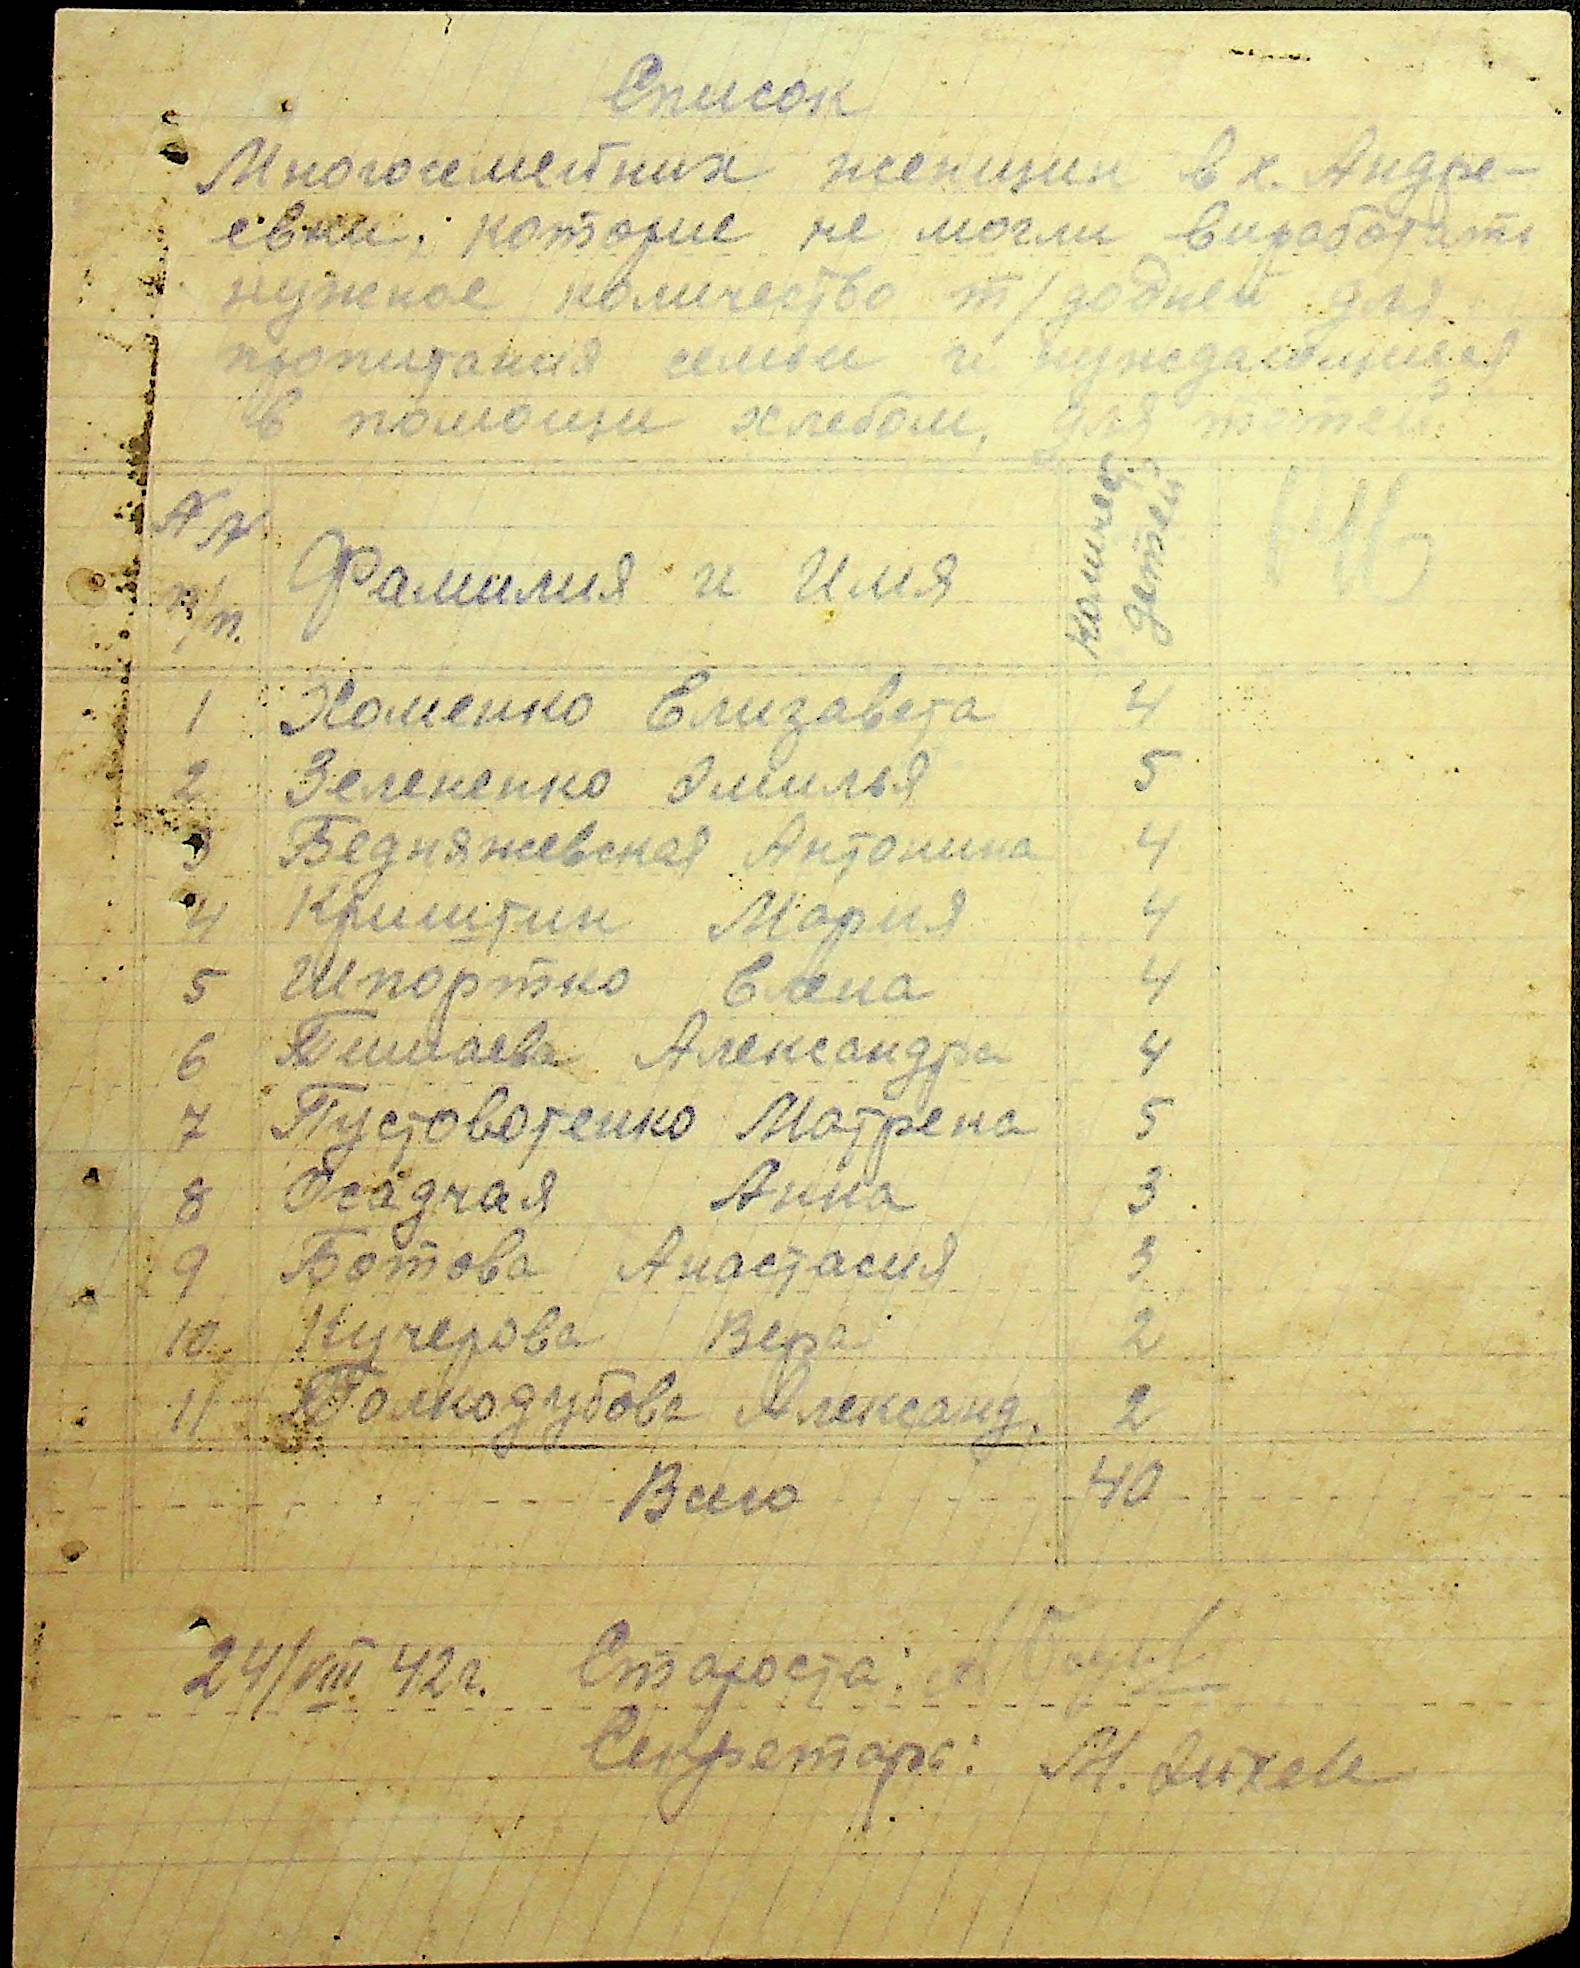 Список
Многосемейних женщин в х. Андре-
евки, которие не могли виработать
нужное количество т/додней для
пропитания семьи и нуждающиеся
в помощи хлебом, для тетей.
№№ п/п. Фамилия и Имя Количест. детей
1 Хоменко Елизавета 4
2 Зелененко Эмилья 5
3 Бедняжевская Антонина 4
4 Криштин Мария 4
5 Шпортко Елена 4
6 Александра 4
7 Пустовотенко Матрена 5
8 Осадчая Анна 3
9 Ботова Анастасия 3
10 Кучерова Вера 2
11 Полкодубова Александ. 2
Всего 40
24/VIII 42г. Староста:
Секретарь: М.